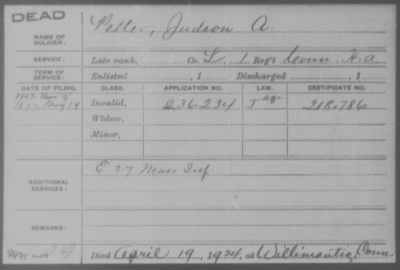 DEAD
NAME OF SOLDIER: Potter, Judson A.
SERVICE: Late rank, Co. L, 1 Reg't Conn. H. A.
TERM OF SERVICE: Enlisted , 1 Discharged , 1
DATE OF FILING. CLASS. APPLICATION NO. LAW. CERTIFICATE NO.
1877, Aug 14 Invalid, 236234 218,786
Widow,
Minor,
ADDITIONAL SERVICES: E 27 Mass Inf
REMARKS:
Died April 19, 1924, at Willimantic, Conn.